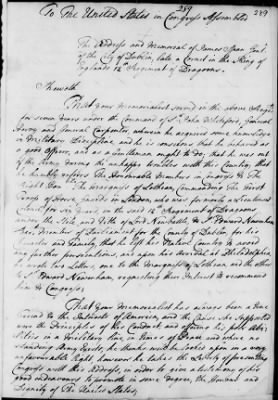 289
To The United States in Congress Assembled
289
The Address and Memorial of James Span Gent.
of the City of Dublin, late a Cornet in the King of
England's 12th Regiment of Dragoons.
Sheweth
That your Memorialist served in the above Regimt.
for seven Years under the Command of Sir John Whiteford, General
and General Carpenter, wherein he acquired some knowledge
in Military Discipline, and he is conscious that he behaved as
a good Officer, and as a Gentleman ought to do; that he was out
of the Army during the unhappy troubles with this Country, that
he humbly refers the Honourable Members in Congress to The
Right Honble. The Marquess of Lothian Commanding The First
Troop of Horse Guards in London, who was formerly a Lieutenant
Colonel for Years, in the said 12th Regiment of Dragoons
under the Title of Lord Newbattle, to Sr. Edward Newenham
Member of Parliament for the County of Dublin, for his
Character and Family, that he left his Native Country to avoid
any further persecutions, and upon his Arrival at Philadelphia
he Two Letters, one to the Marquess of Lothian, and the other
to Sr. Edward Newenham, requesting their Interest to recommend
him to Congress;
That your Memorialist has always been a
Friend to the Interests of America, and the Cause she supported
was the Principles of his Conduct, and offering his poor Abi-
lities in a Military line, in times of Peace and when no
standing Army Exists, he thinks will be looked upon in a very
unfavourable light, however he takes the Liberty of presenting
Congress with this Address, in order to give a testimony of his
good endeavours to promote in some degree, the Honour and
Dignity of The United States;